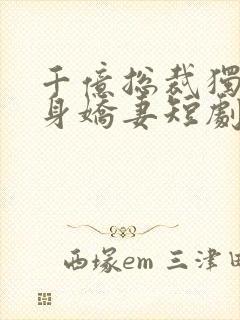 千億總裁獨
身嬌妻短劇
西塚em 三津田